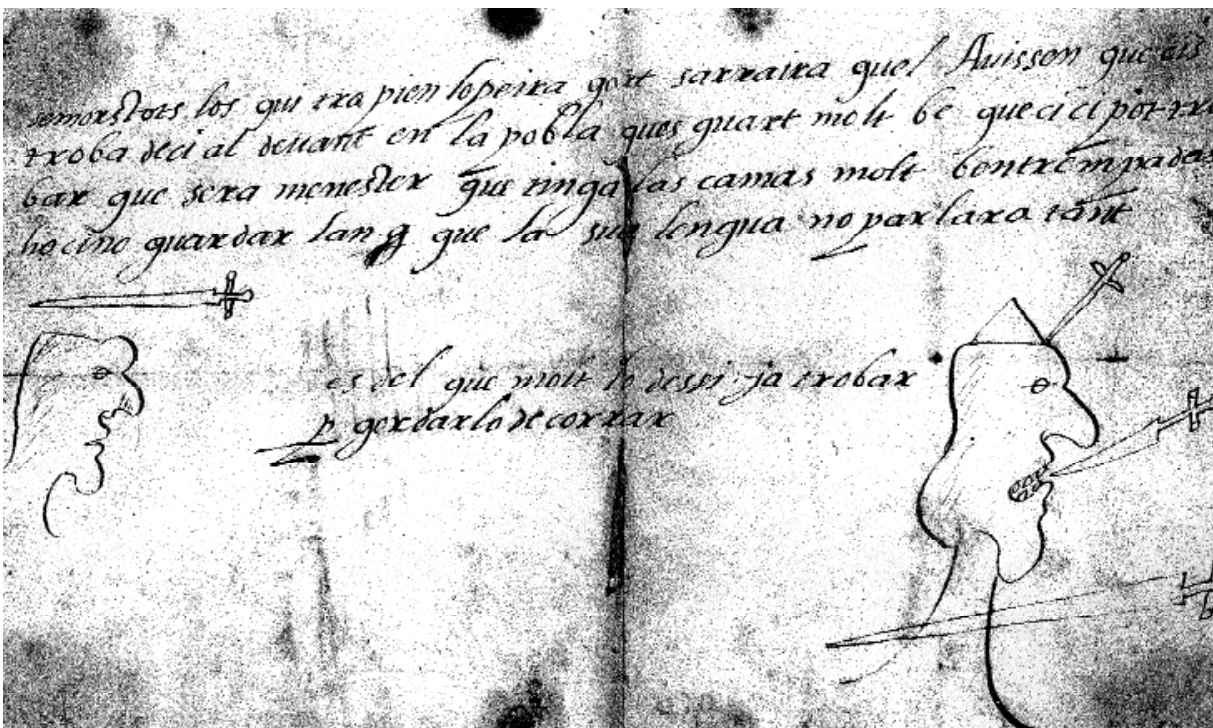 los qui tropien lopeira gort sarraira quel Auisson que
troba deci al deuant en la pobla ques guart molt be que ci ci pot tro
bar que sera menester que tinga las camas molt bontrempadas
ho cino guardar lan que la sua lengua no parlara tant
es del que molt lo dessi ja trobar
p gordarlo de corrar